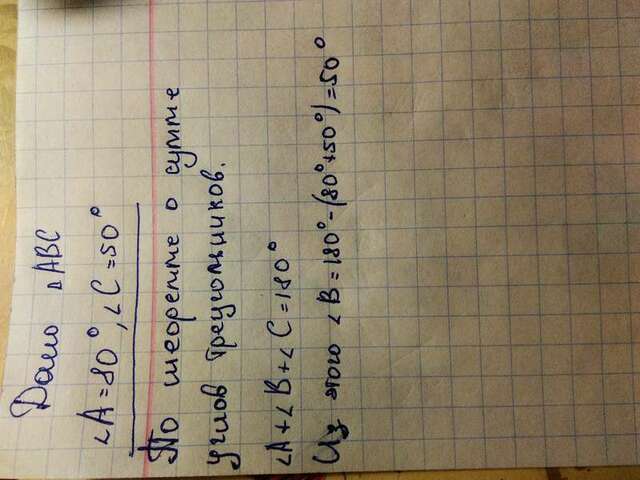 Дано ▵ABC
∠A=80°, ∠C=50°
По теореме о сумме
углов треугольников.
∠A+∠B+∠C=180°
Из этого ∠B=180°-(80°+50°)=50°